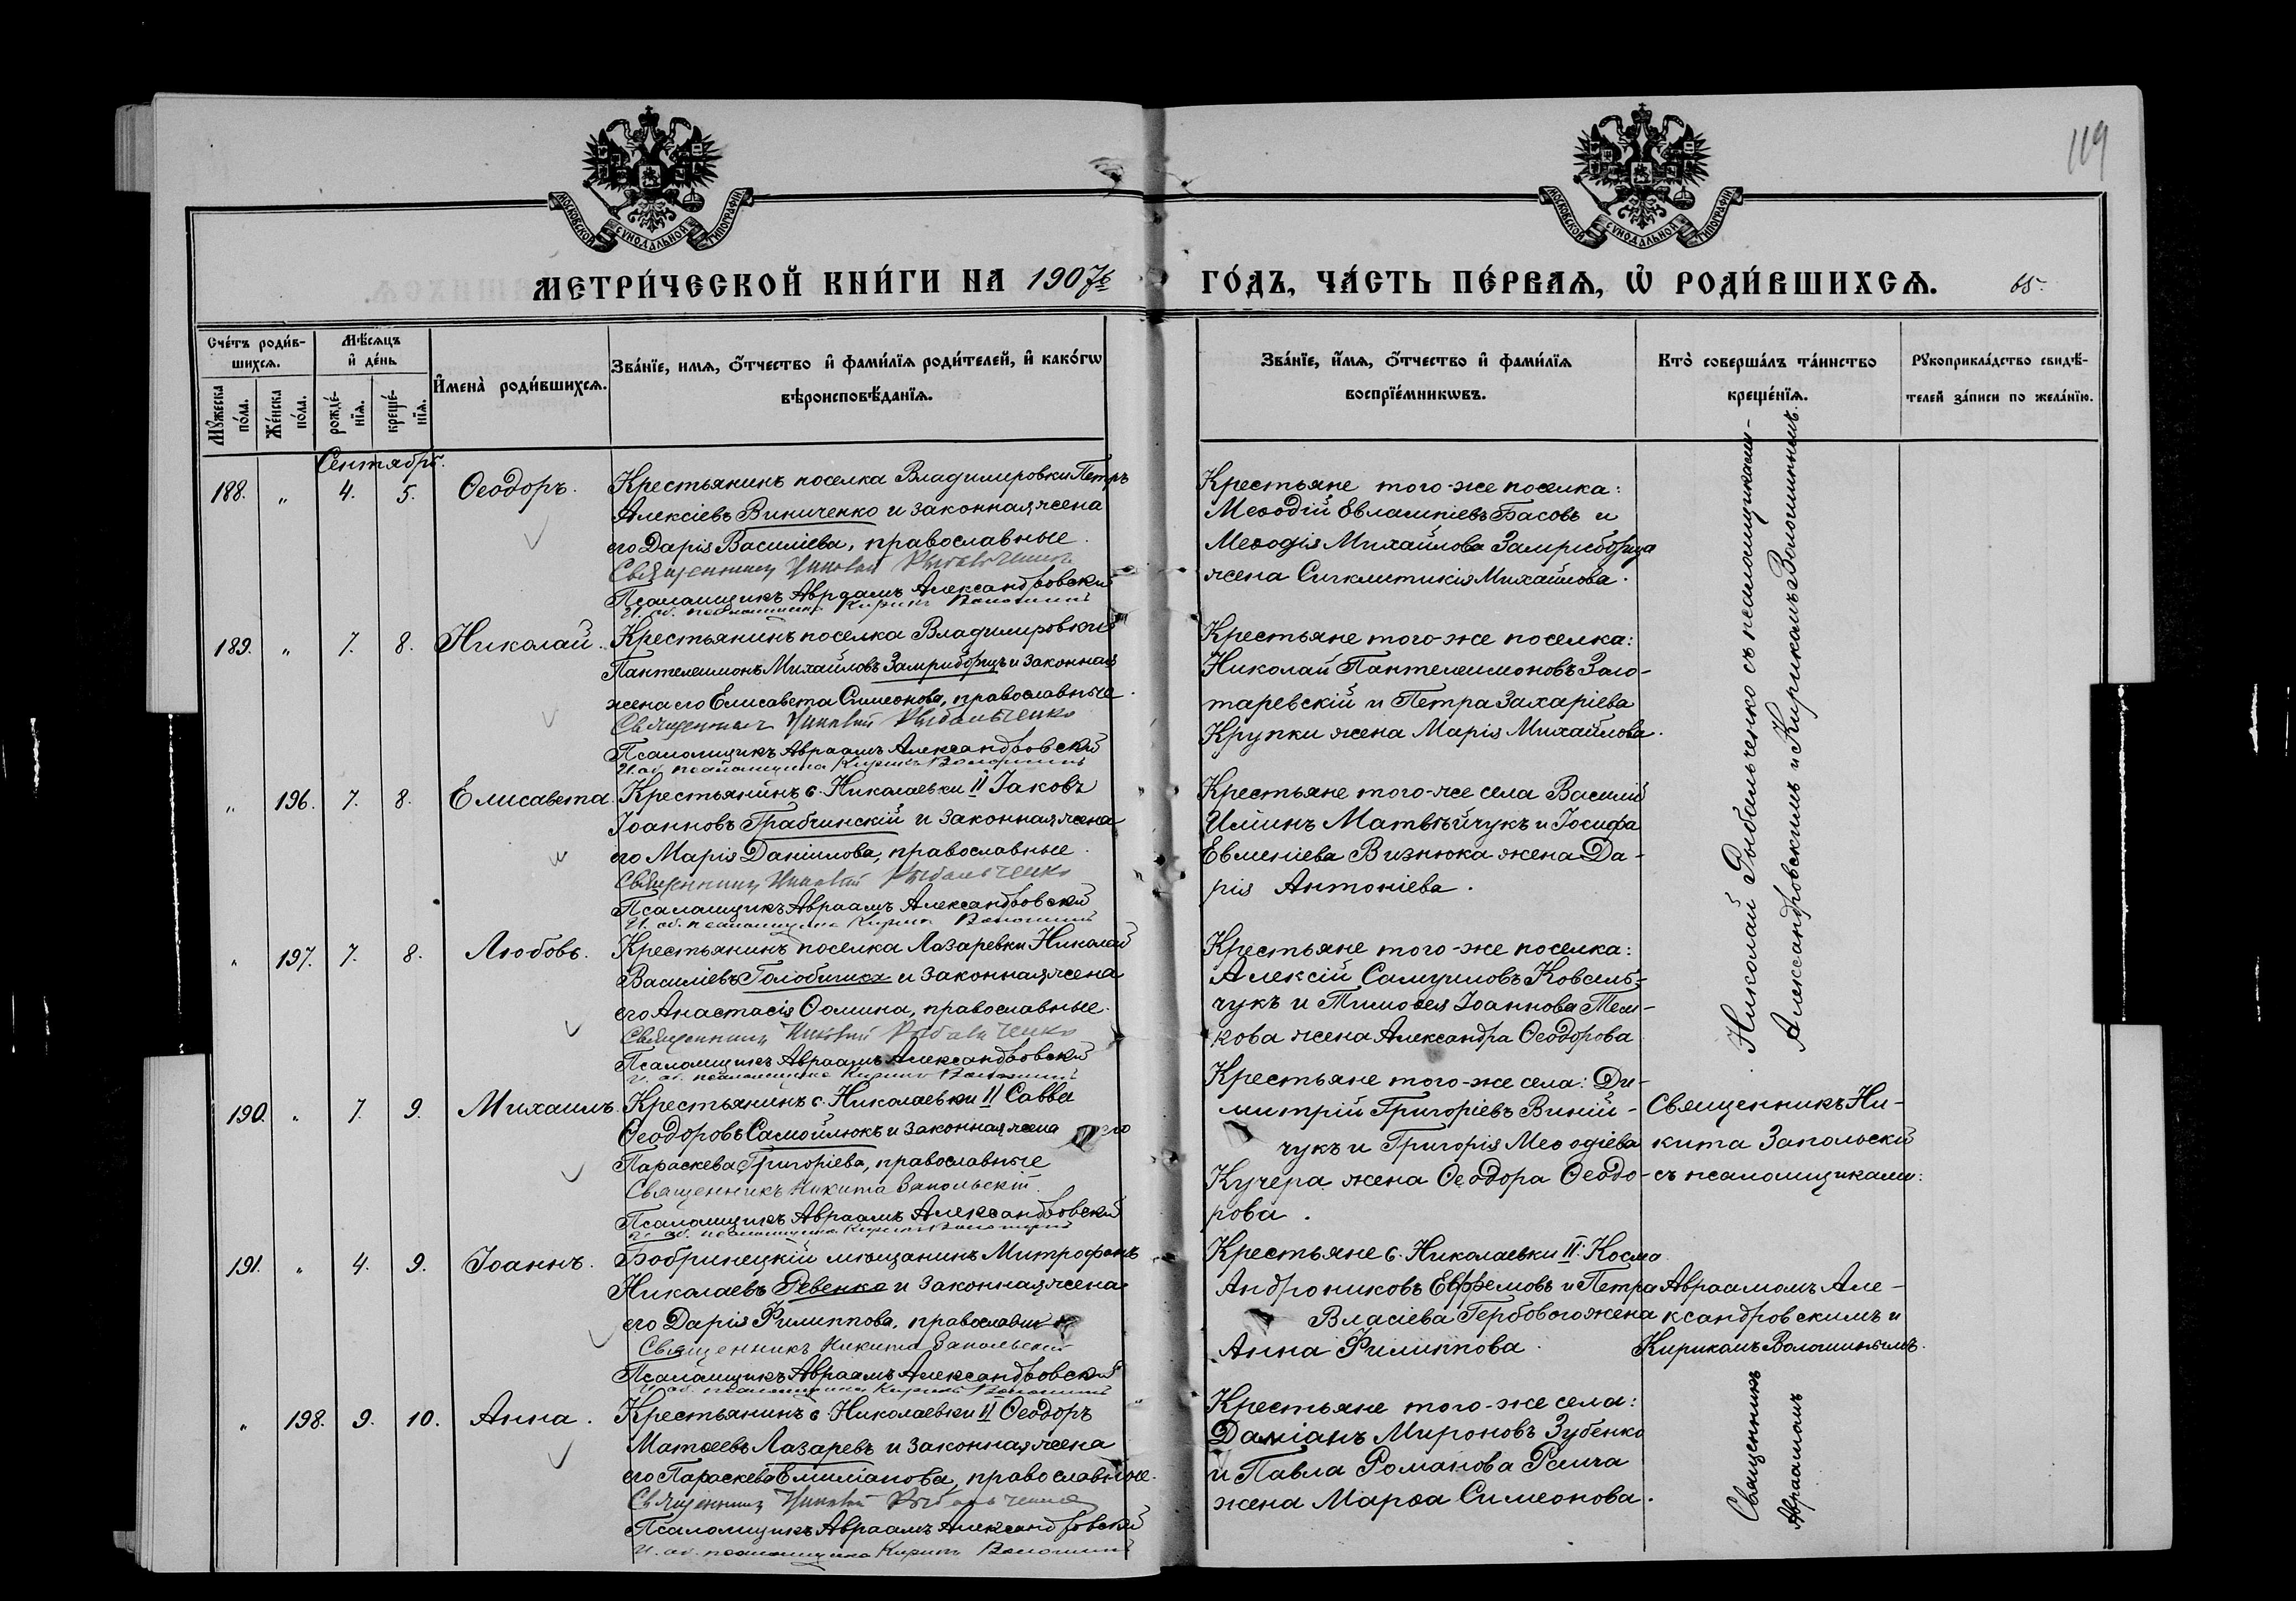 119
МОСКОВСКОЙ СѴНОДАЛЬНОЙ ТИПОГРАФІИ
МОСКОВСКОЙ СѴНОДАЛЬНОЙ ТИПОГРАФІИ
МЕТРИ́ЧЕСКОЙ КНИ́ГИ НА 1907й
ГО́ДЪ, ЧА́СТЬ ПЕ́РВАѦ, Ѡ҆ РОДИ́ВШИХСѦ.
65.
Сче́тъ роди́в-
шихсѧ.
Мꙋжеска по́ла.
Же́нска по́ла.
Мѣ́сѧцъ
и҆ де́нь
рожде́-
нїѧ.
креще́-
нїѧ.
И҆мена̀ роди́вшихсѧ.
Зва́нїе, имѧ, о҆́тчество и҆ фами́лїѧ роди́телей, и҆ како́гѡ
вѣроисповѣ́данїѧ.
Зва́нїе, и҆́мѧ, о҆́тчество и҆ фами́лїѧ
воспрїе́мникѡвъ.
Кто̀ соверша́лъ та́инство
креще́нїѧ.
Рꙋкоприкла́дство свидѣ́-
телей за́писи по жела́нїю.
Сентябрь.
188. „ 4. 5. Ѳеодоръ.
Крестьянинъ поселка Владимировки Петръ
Алексіевъ Виниченко и законная жена
его Дарія Василіева, православные.
Священникъ Николай Рыбальченко
Псаломщикъ Авраамъ Александровскій
И. об. псаломщика Кирикъ Волошинъ
Крестьяне того-же поселка:
Меѳодій Евлампіевъ Басовъ и
Меѳодія Михайлова Замриборща
жена Сигклитикія Михайлова.
189. „ 7. 8. Николай.
Крестьянинъ поселка Владимировки
Пантелеимонъ Михайловъ Замриборщъ и законная
жена его Елисавета Симеонова, православные.
Священникъ Николай Рыбальченко
Псаломщикъ Авраамъ Александровскій
И. об. псаломщика Кирикъ Волошинъ
Крестьяне того-же поселка:
Николай Пантелеимоновъ Золо-
таревскій и Петра Захаріева
Крупки жена Марія Михайлова.
„ 196. 7. 8. Елисавета.
Крестьянинъ с. Николаевки II Іаковъ
Іоанновъ Грабчинскій и законная жена
его Марія Даніилова, православные.
Священникъ Николай Рыбальченко
Псаломщикъ Авраамъ Александровскій
И. об. псаломщика Кирикъ Волошинъ
Крестьяне того-же села Василій
Илиинъ Матвѣйчукъ и Іосифа
Евменіева Визнюка жена Да-
рія Антоніева.
„ 197. 7. 8. Любовь.
Крестьянинъ поселка Лазаревки Николай
Василіевъ и законная жена
его Анастасія Ѳомина, православные.
Священникъ Николай Рыбальченко
Псаломщикъ Авраамъ Александровскій
И. об. псаломщика Кирикъ Волошинъ
Крестьяне того-же поселка:
Алексій Самуиловъ Коваль-
чукъ и Тимоѳея Іоаннова
жена Александра Ѳеодорова
Николай Рыбальченко съ псаломщиками-
Александровскимъ и Кирикомъ Волошинымъ.
190. „ 7. 9. Михаилъ.
Крестьянинъ с. Николаевки II Савва
Ѳеодоровъ Самойлюкъ и законная жена его
Параскева Григоріева, православные
Священникъ Никита Запольскій.
Псаломщикъ Авраамъ Александровскій
И. об. псаломщика Кирикъ Волошинъ
Крестьяне того-же села: Ди-
митрій Григоріевъ Виний-
чукъ и Григорія Меѳодіева
Кучера жена Ѳеодора Ѳеодо-
рова.
Священникъ Ни-
кита Запольскій
съ псаломщиками:
191. „ 4. 9. Іоаннъ.
Бобринецкій мѣщанинъ Митрофанъ
Николаевъ Ревенко и законная жена
его Дарія Филиппова, православные
Священникъ Никита Запольскій
Псаломщикъ Авраамъ Александровскій
И. об. псаломщика Кирикъ Волошинъ
Крестьяне с. Николаевки II: Косма
Андрониковъ Ефремовъ и Петра
Власіева Гербового жена
Анна Филиппова.
Авраамомъ Але-
ксандровскимъ и
Кирикомъ Волошинымъ.
„ 198. 9. 10. Анна.
Крестьянинъ с. Николаевки II Ѳеодоръ
Матѳеевъ Лазаревъ и законная жена
его Параскева Емиліанова, православные.
Священникъ Николай Рыбальченко
Псаломщикъ Авраамъ Александровскій
И. об. псаломщика Кирикъ Волошинъ
Крестьяне того-же села:
Даміанъ Мироновъ Зубенко
и Павла Романова
жена Марѳа Симеонова.
Священникъ
Авраамомъ